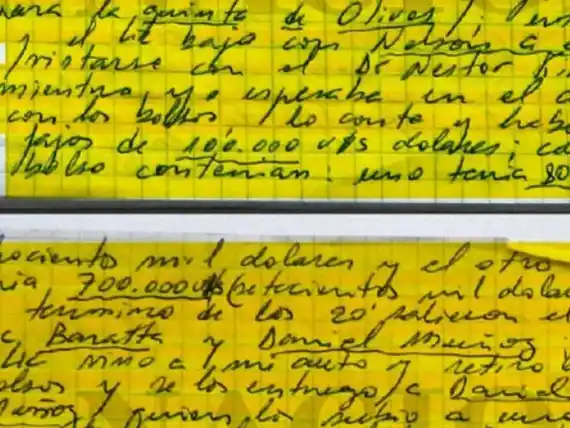 para la quinta de Olivos /. 
y el Lic bajo con Nelson a
/ristarse con el Dr Nestor
mientras yo esperaba en el a
con los bolsos / lo conte y hab
fajos de 100.000 u$s dolares; ca
bolso contenian: uno tenia 80
hocientos mil dolares y el otro
ia 700.000 u$s (setecientos mil dola
termino de los 20' salieron el
c Baratta y Daniel Muñoz
Lic vino a mi auto y retiro
olsos y se los entrego a Daniel
Muñoz, quien los subio a un